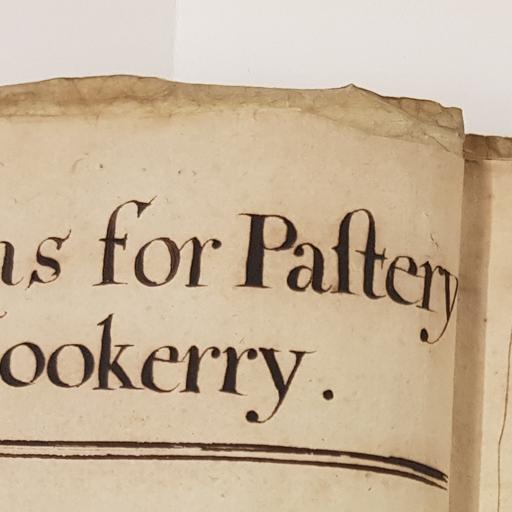 ns for Paſtery
ookerry.